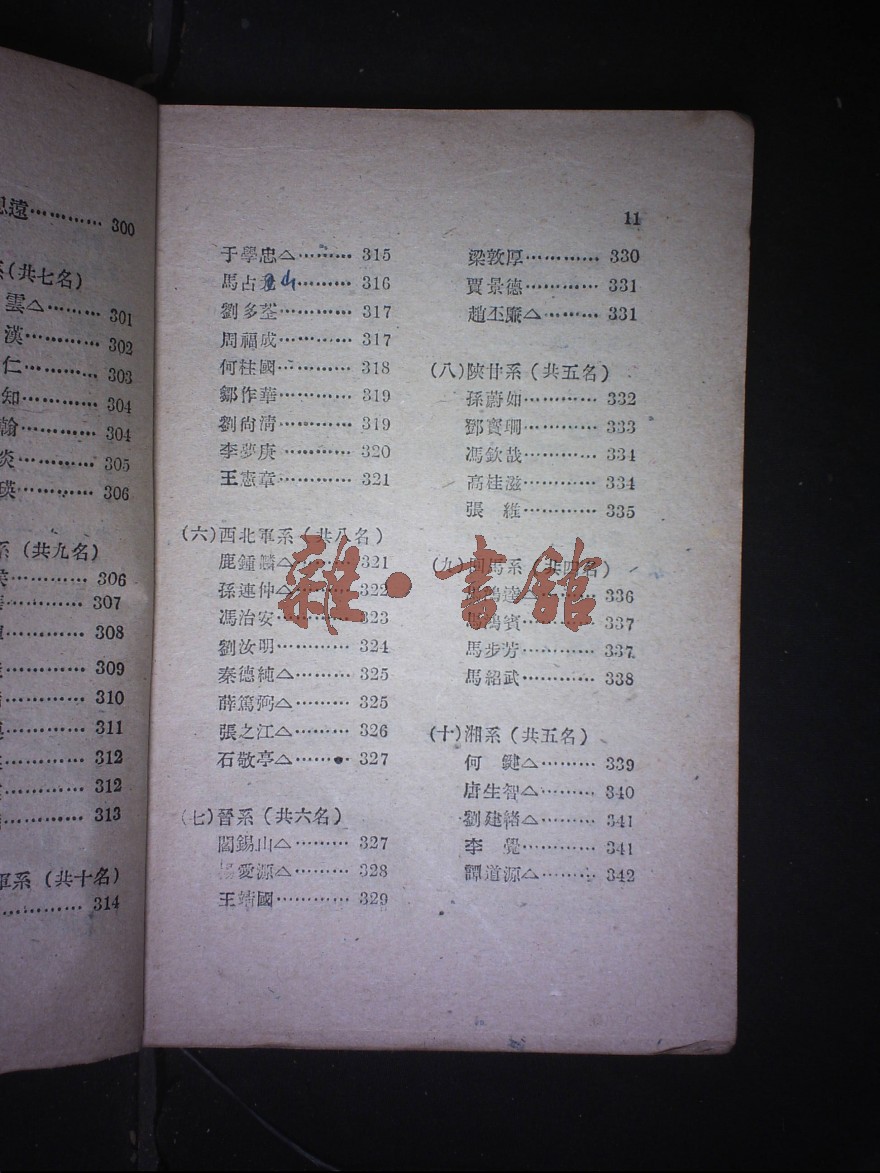 思遠············ 300
系(共七名)
雲△········ 301
漢··········· 302
仁··········· 303
知··········· 304
翰··········· 304
炎··········· 305
瑛··········· 306
系 (共九名)
··········· 306
··········· 307
··········· 308
··········· 309
··········· 310
··········· 311
··········· 312
··········· 312
··········· 313
軍系 (共十名)
··········· 314
11
于學忠△········· 315
馬占山········· 316
劉多荃············ 317
周福成············ 317
何柱國············ 318
鄒作華············ 319
劉尙清············ 319
李夢庚············ 320
王憲章············ 321
(六)西北軍系(共八名)
鹿鍾麟△········· 321
孫連仲△········· 322
馮治安············ 323
劉汝明············ 324
秦德純△········· 325
薛篤弼△········· 325
張之江△········· 326
石敬亭△········· 327
(七)晉系(共六名)
閻錫山△········· 327
楊愛源△········· 328
王靖國············ 329
梁敦厚············ 330
賈景德············ 331
趙丕廉△········· 331
(八)陝甘系(共五名)
孫蔚如············ 332
鄧寶珊············ 333
馮欽哉············ 334
高桂滋············ 334
張 維············ 335
(九)回馬系(共四名)
馬鴻逵△········· 336
馬鴻賓············ 337
馬步芳············ 337
馬紹武············ 338
(十)湘系(共五名)
何 鍵△········· 339
唐生智△········· 340
劉建緒△········· 341
李 覺············ 341
譚道源△········· 342
雜·書館